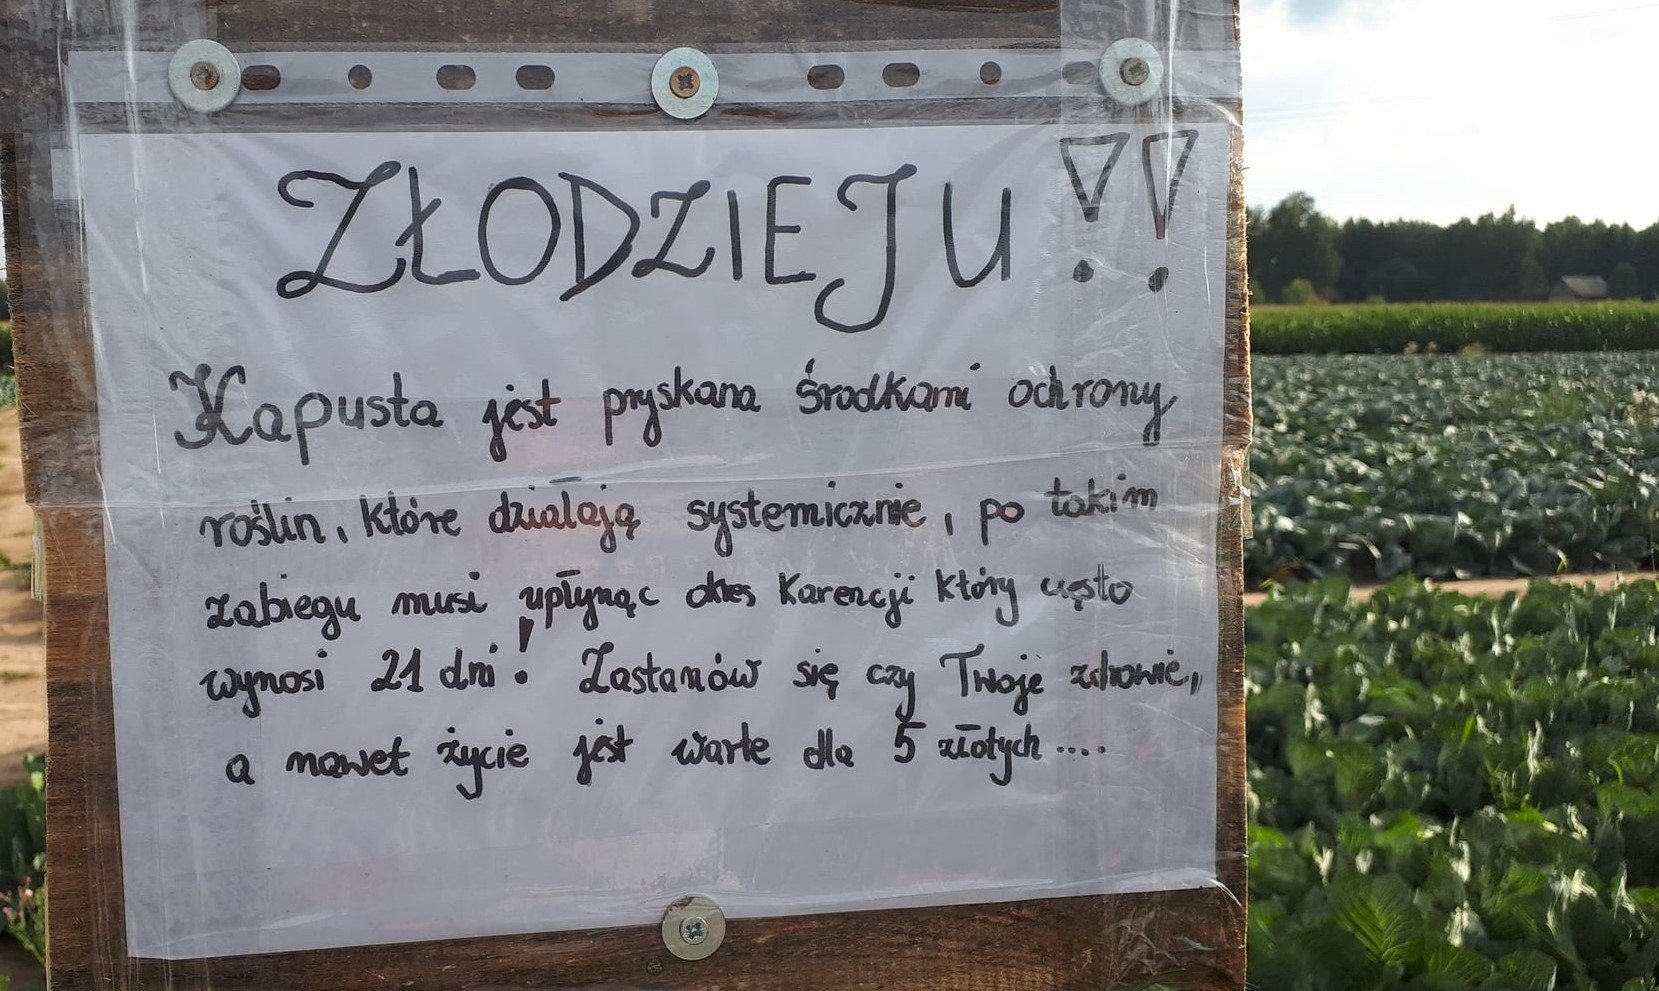 ZŁODZIEJU!!
Kapusta jest pryskana środkami ochrony
roślin, które działają systemicznie, po takim
zabiegu musi upłynąc okres karencji który często
wynosi 21 dni! Zastanów się czy Twoje zdrowie,
a nawet życie jest warte dla 5 złotych....